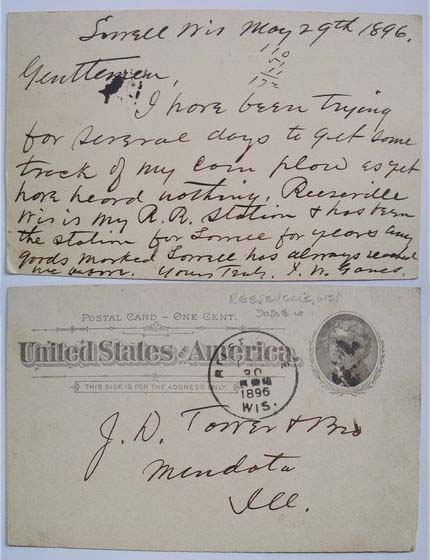 Lowell Wis May 29th 1896.
Gentlemen,
I have been trying
for several days to get some
track of my corn plow as yet
have heard nothing. Reeseville
Wis is my R. R. Station & has been
the station for Lowell for years any
goods marked Lowell has always reached
me before. Yours Truly,
REESEVILLE WIS
DODGE
POSTAL CARD – ONE CENT.
United States of America.
THIS SIDE IS FOR THE ADDRESS ONLY.
30
1896
WIS.
J. D. Tower & Bro
Mendota
Ill.